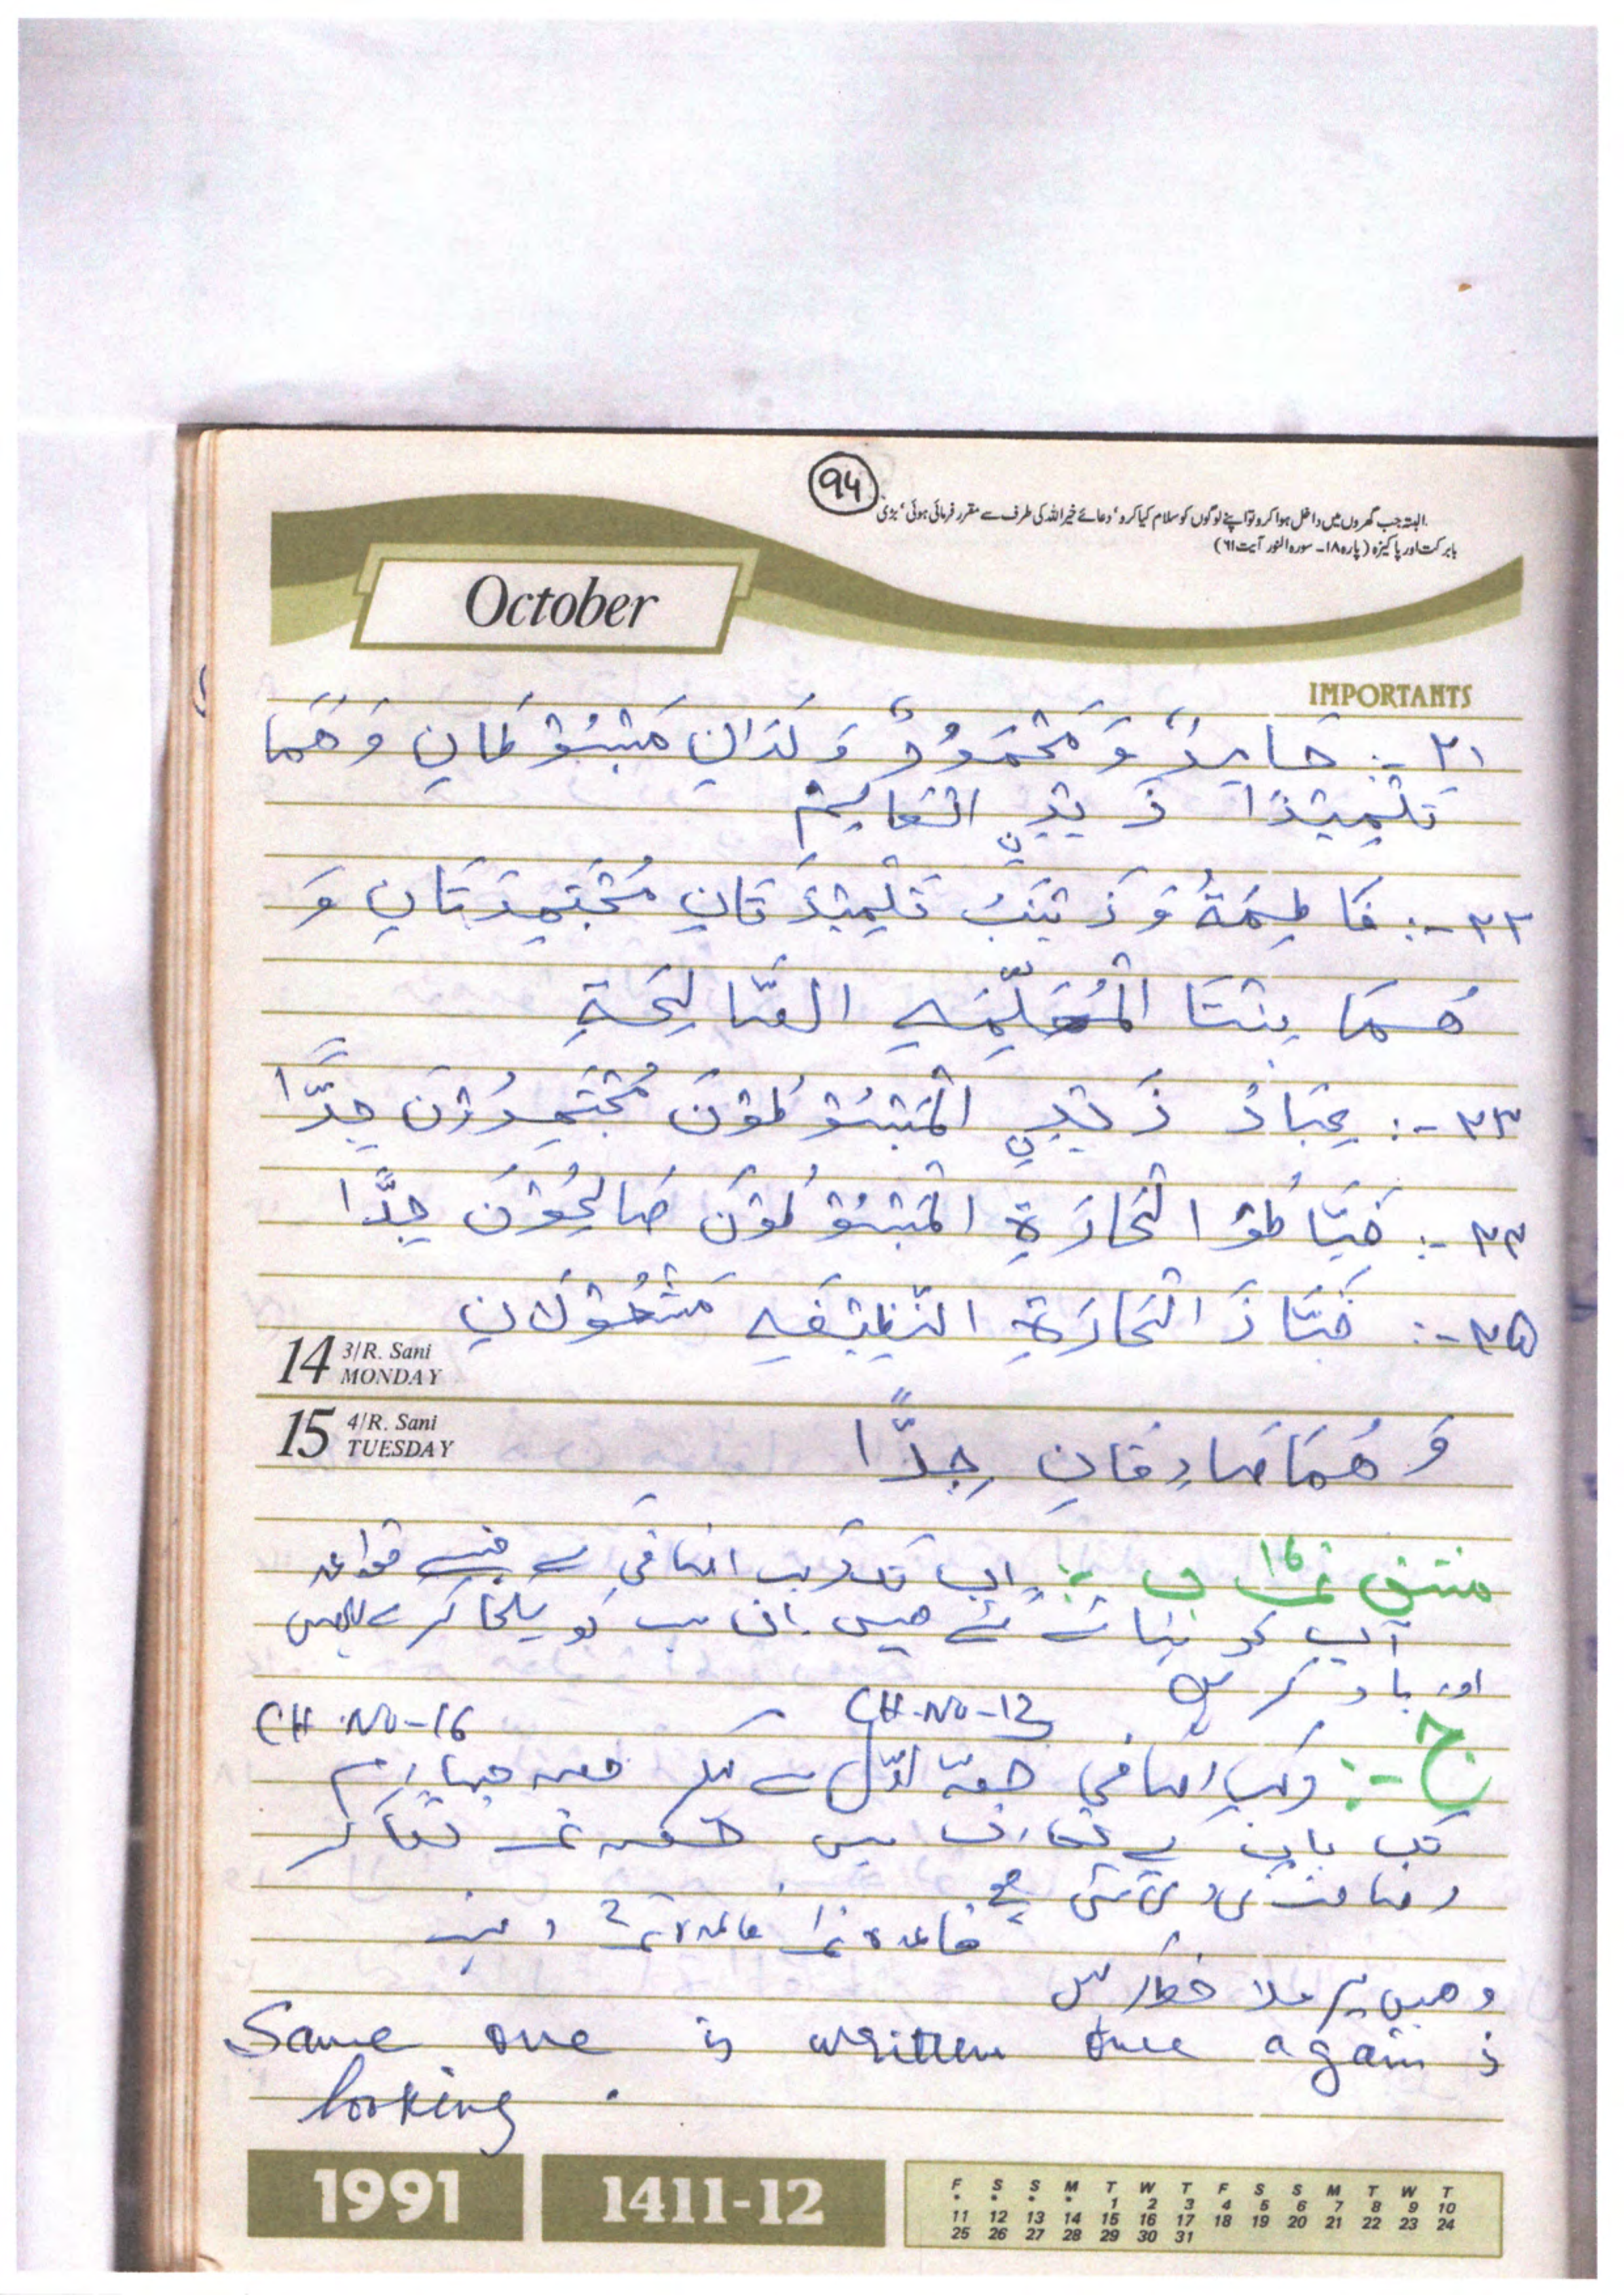 94
البتہ جب گھروں میں داخل ہوا کرو تو اپنے لوگوں کو سلام کیا کرو، دعائے خیر اللہ کی طرف سے مقرر فرمائی ہوئی، بڑی
بابرکت اور پاکیزہ (پارہ ۱۸۔ سورہ النور آیت ۶۱)
October
IMPORTANTS
۳۱ -: حَامِدٌ وَ مَحْمُوْدٌ وَلَدَانِ مَبْسُوْطَانِ وَ هُمَا
تِلْمِيْذَا زَيْدِنِ الْعَالِمِ
۳۲ -: فَاطِمَةُ وَ زَيْنَبُ تِلْمِيْذَتَانِ مُجْتَهِدَتَانِ وَ
هُمَا بِنْتَا الْمُعَلِّمَةِ الصَّالِحَةِ
۳۳ -: عِبَادُ زَيْدِنِ الْمَبْسُوْطُوْنَ مُجْتَهِدُوْنَ جِدًّا
۳۴ -: خَيَّاطُوْا الْحَارَةِ الْمَبْسُوْطُوْنَ صَالِحُوْنَ جِدًّا
۳۵ -: خَبَّازَ الْحَارَةِ النَّظِيْفَةِ مَشْغُوْلَانِ
14 3/R. Sani
MONDAY
15 4/R. Sani
TUESDAY
وَ هُمَا صَادِقَانِ جِدًّا
مشق نمبر ۱۶ ب -: اب تک مرکب اضافی کے جتنے قواعد
آپ کو بتائے گئے ہیں ان سب کو یکجا کر کے لکھیں
اور یاد کر لیں
CH. NO-13 CH. NO-16
ج -: مرکب اضافی حصہ اوّل سے لیکر حصہ چہارم
تک
وضاحت کی گئی ہے
قاعدہ نمبر ۱ قاعدہ نمبر ۲ وغیرہ
وھیں پر ملاحظہ کر لیں
Same one is written once again is
looking.
1991
1411-12
F S S M T W T F S S M T W T
* * * * 1 2 3 4 5 6 7 8 9 10
11 12 13 14 15 16 17 18 19 20 21 22 23 24
25 26 27 28 29 30 31